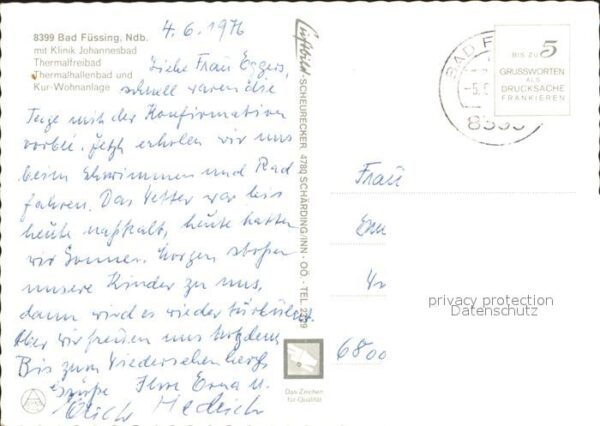 8399 Bad Füssing, Ndb.
mit Klinik Johannesbad
Thermalfreibad
Thermalhallenbad und
Kur-Wohnanlage
4.6.1976
Liebe Frau Eggers,
schnell waren die
Tage mit der Konfirmation
vorbei. Jetzt erholen wir uns
beim Schwimmen und Rad
fahren. Das Wetter war bis
heute naßkalt, heute hatten
wir Sonne. Morgen stoßen
unsere Kinder zu uns,
dann wird es wieder
Aber wir freuen uns trotzdem
Bis zum Wiedersehen herzl.
Grüße Ihre Erna u.
Erich
Luftbild-SCHEURECKER, 4780 SCHÄRDING/INN - OÖ. - TEL.
BAD F
-5.
BIS ZU 5
GRUSSWORTEN
ALS
DRUCKSACHE
FRANKIEREN
Frau
6800
privacy protection
Datenschutz
Das Zeichen
für Qualität